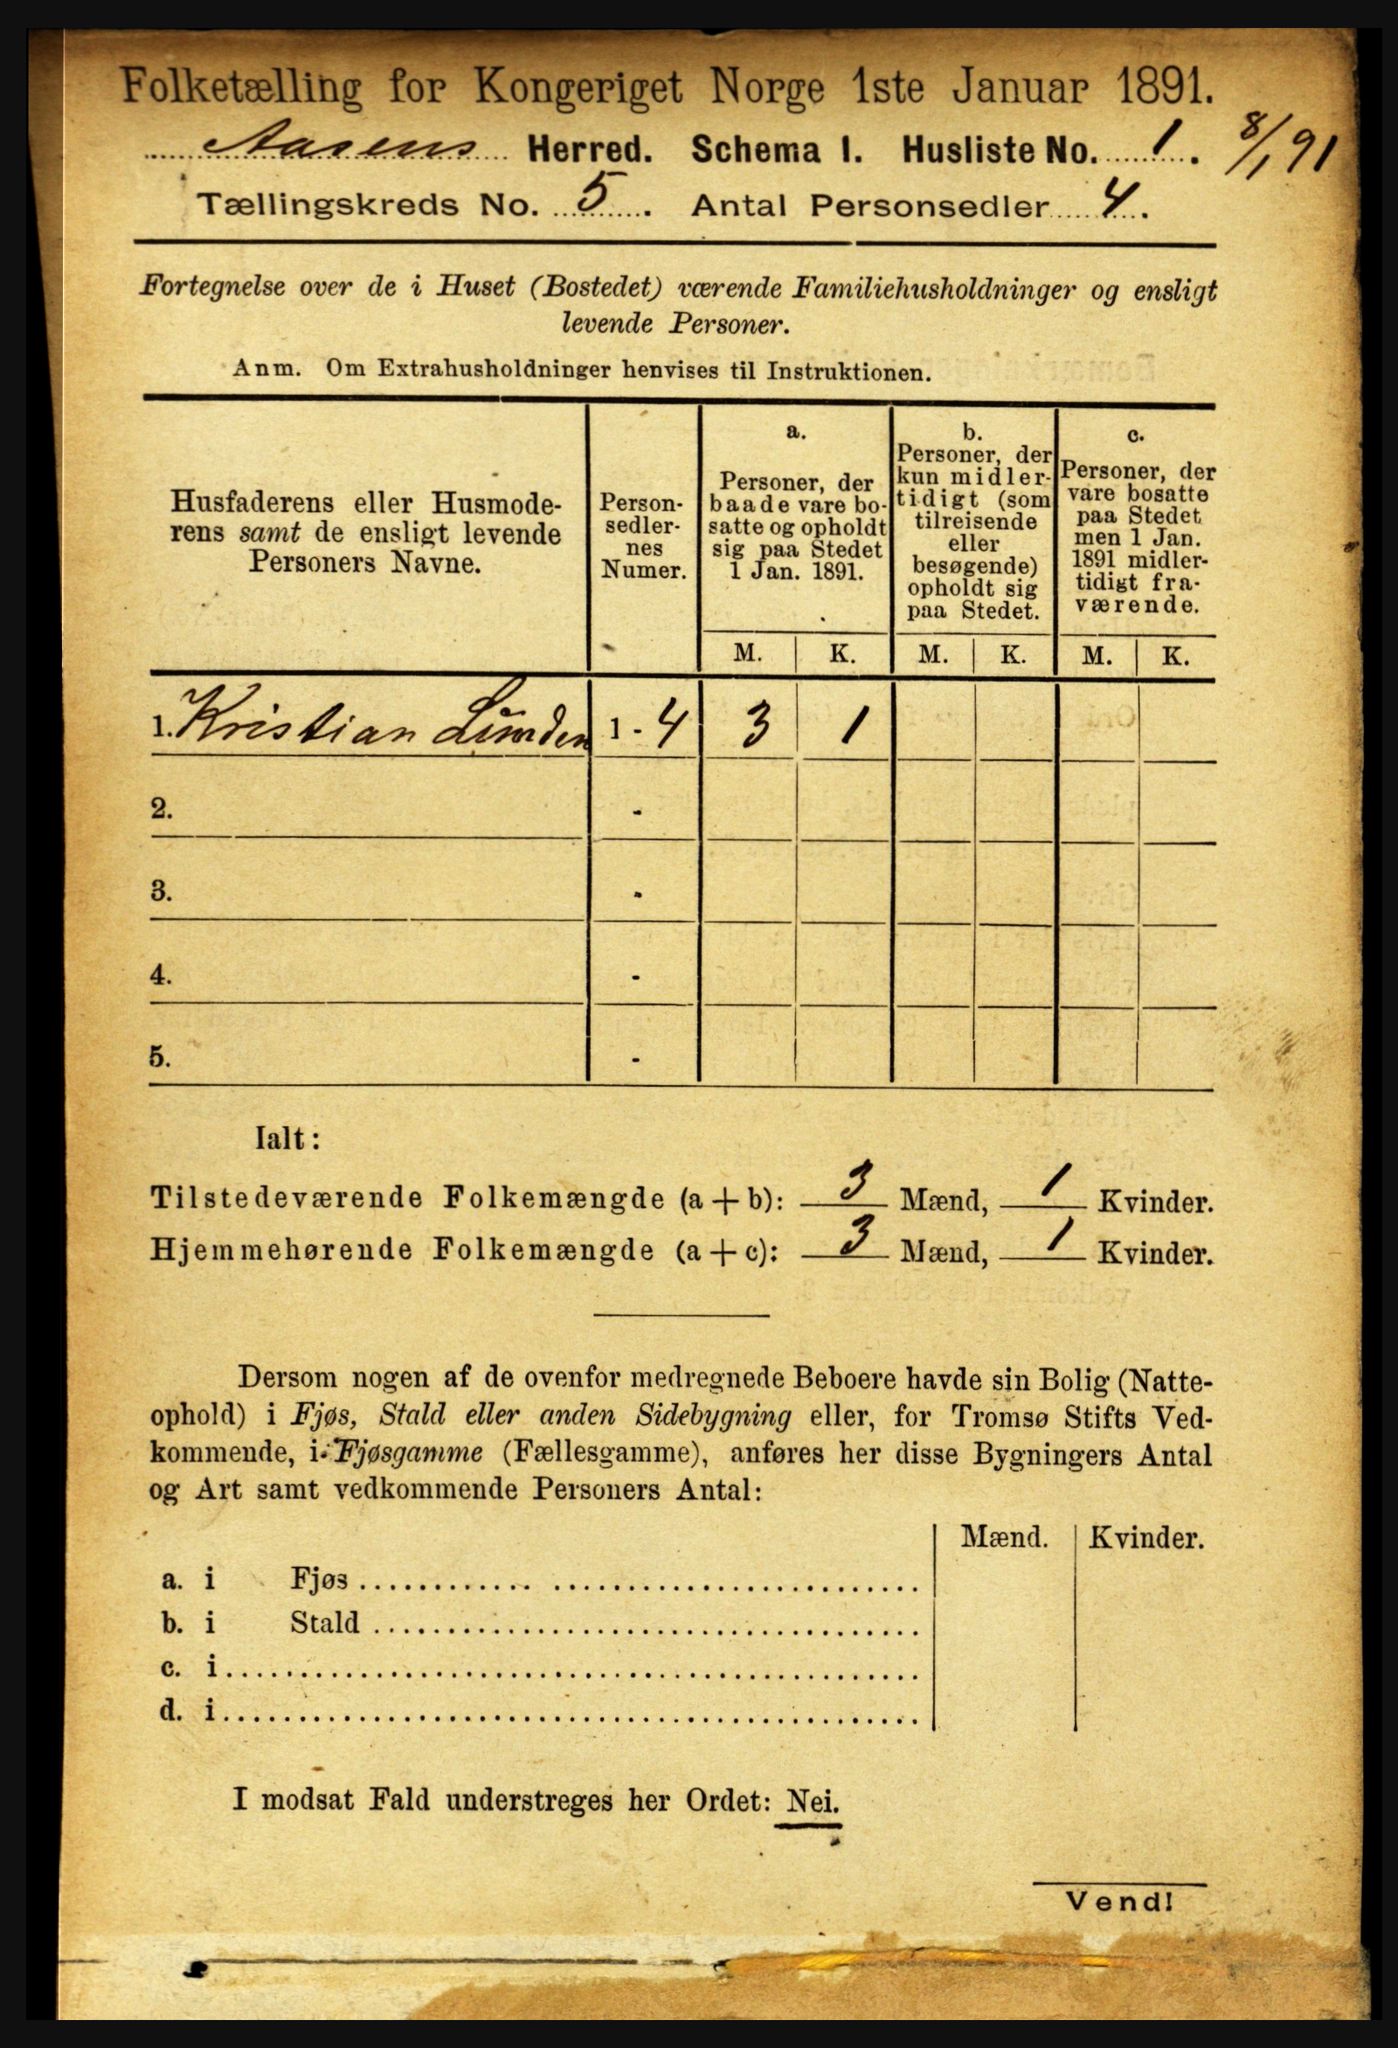 Folketælling for Kongeriget Norge 1ste Januar 1891.
Aasens Herred. Schema I. Husliste No. 1. 8/1 91
Tællingskreds No. 5. Antal Personsedler 4.
Fortegnelse over de i Huset (Bostedet) værende Familiehusholdninger og ensligt
levende Personer.
Anm. Om Extrahusholdninger henvises til Instruktionen.
Husfaderens eller Husmode-
rens samt de ensligt levende
Personers Navne.
Person-
sedler-
nes
Numer.
a.
Personer, der
baade vare bo-
satte og opholdt
sig paa Stedet
1 Jan. 1891.
b.
Personer, der
kun midler-
tidigt (som
tilreisende
eller
besøgende)
opholdt sig
paa Stedet.
c.
Personer, der
vare bosatte
paa Stedet
men 1 Jan.
1891 midler-
tidigt fra-
værende.
M. K. M. K. M. K.
1. Kristian Lunden 1 - 4 3 1
2. -
3. -
4. -
5. -
Ialt:
Tilstedeværende Folkemængde (a + b): 3 Mænd, 1 Kvinder.
Hjemmehørende Folkemængde (a + c): 3 Mænd, 1 Kvinder.
Dersom nogen af de ovenfor medregnede Beboere havde sin Bolig (Natte-
ophold) i Fjøs, Stald eller anden Sidebygning eller, for Tromsø Stifts Ved-
kommende, i Fjøsgamme (Fællesgamme), anføres her disse Bygningers Antal
og Art samt vedkommende Personers Antal:
Mænd. Kvinder.
a. i Fjøs
b. i Stald
c. i
d. i
I modsat Fald understreges her Ordet: Nei.
Vend!